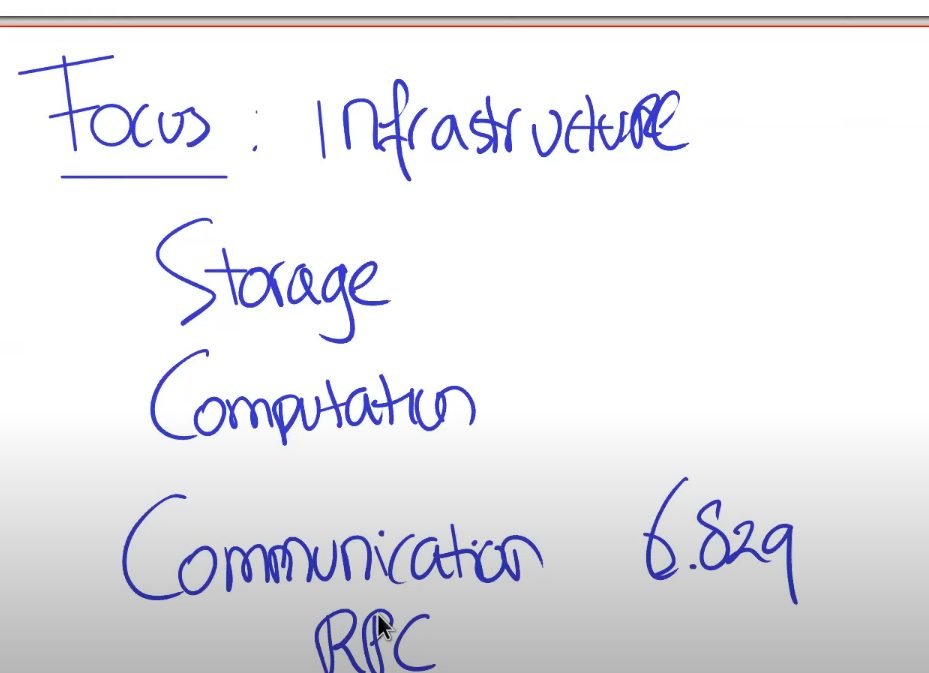 Focus: Infrastructure
Storage
Computation
Communication 6.829
RPC